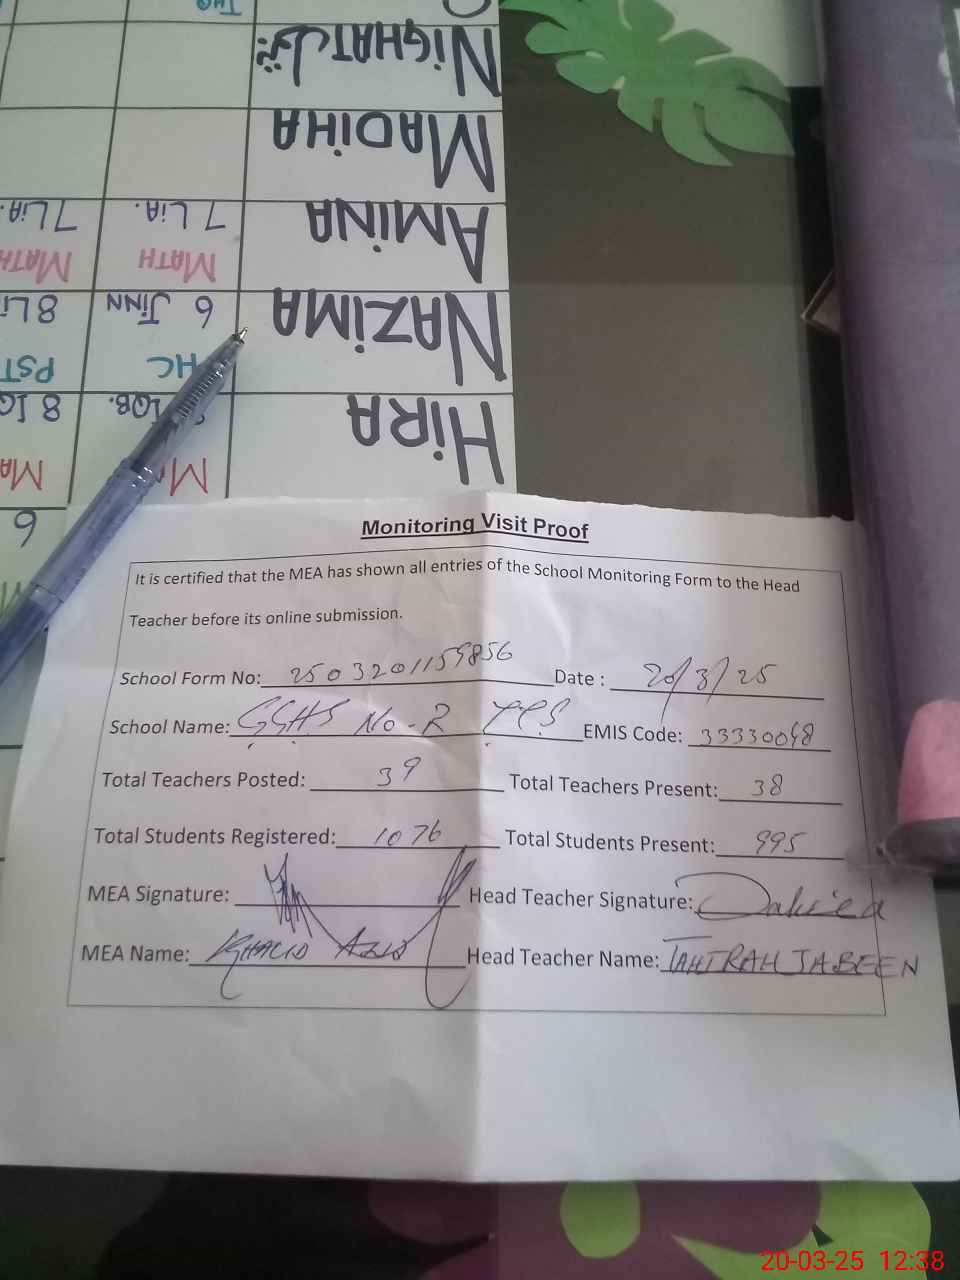 THQ
NiGHAT
MADiHA
7 LiA. 7 LiA.
AMiNA
MATH MATH
8 Li 6 JiNN NAZiMA
PST HC
8 IQ IQB. HiRA
MA
6
Monitoring Visit Proof
It is certified that the MEA has shown all entries of the School Monitoring Form to the Head
Teacher before its online submission.
School Form No: 2503201159856 Date : 20/3/25
School Name: GGHS No-2 EMIS Code: 33330048
Total Teachers Posted: 39 Total Teachers Present: 38
Total Students Registered: 1076 Total Students Present: 995
MEA Signature: Head Teacher Signature:
MEA Name: KHALID AZIZ Head Teacher Name: TAHIRAH JABEEN
20-03-25 12:38